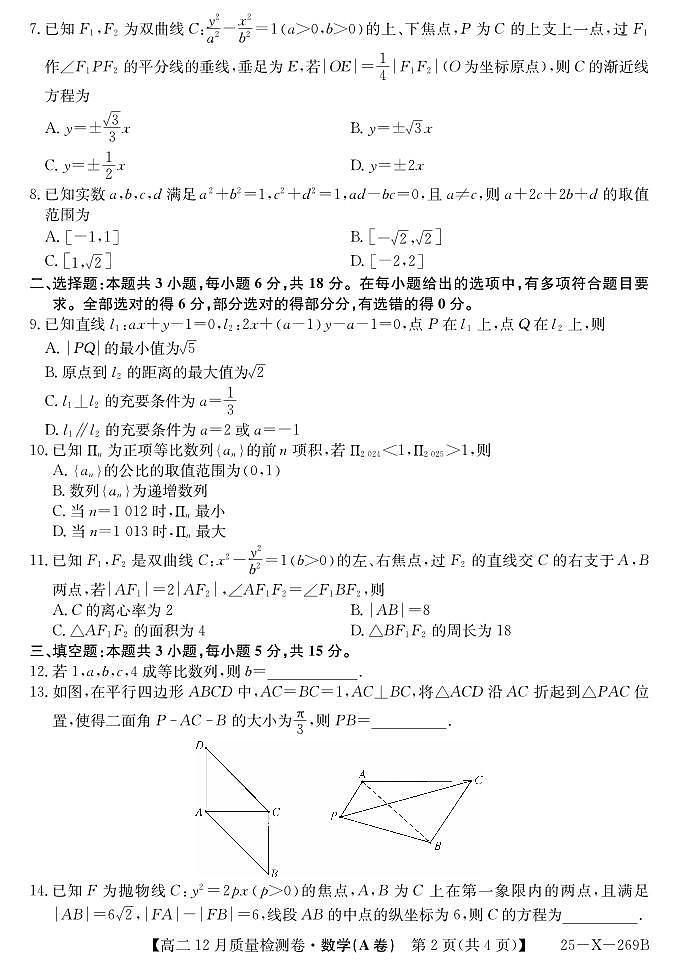 7. 已知 F₁,F₂ 为双曲线 C: y²/a² − x²/b² = 1(a>0,b>0)的上、下焦点,P 为 C 的上支上一点,过 F₁
作∠F₁PF₂ 的平分线的垂线,垂足为 E,若|OE|=1/4|F₁F₂|(O 为坐标原点),则 C 的渐近线
方程为
A. y=±√3/3 x B. y=±√3 x
C. y=±1/2 x D. y=±2x
8. 已知实数 a,b,c,d 满足 a²+b²=1,c²+d²=1,ad−bc=0,且 a≠c,则 a+2c+2b+d 的取值
范围为
A. [−1,1] B. [−√2,√2]
C. [1,√2] D. [−2,2]
二、选择题:本题共 3 小题,每小题 6 分,共 18 分。在每小题给出的选项中,有多项符合题目要
求。全部选对的得 6 分,部分选对的得部分分,有选错的得 0 分。
9. 已知直线 l₁:ax+y−1=0,l₂:2x+(a−1)y−a−1=0,点 P 在 l₁ 上,点 Q 在 l₂ 上,则
A. |PQ|的最小值为√5
B. 原点到 l₂ 的距离的最大值为√2
C. l₁⊥l₂ 的充要条件为 a=1/3
D. l₁∥l₂ 的充要条件为 a=2 或 a=−1
10. 已知 Π_n 为正项等比数列{a_n}的前 n 项积,若 Π_2 024<1,Π_2 025>1,则
A. {a_n}的公比的取值范围为(0,1)
B. 数列{a_n}为递增数列
C. 当 n=1 012 时,Π_n 最小
D. 当 n=1 013 时,Π_n 最大
11. 已知 F₁,F₂ 是双曲线 C:x²−y²/b²=1(b>0)的左、右焦点,过 F₂ 的直线交 C 的右支于 A,B
两点,若|AF₁|=2|AF₂|,∠AF₁F₂=∠F₁BF₂,则
A. C 的离心率为 2 B. |AB|=8
C. △AF₁F₂ 的面积为 4 D. △BF₁F₂ 的周长为 18
三、填空题:本题共 3 小题,每小题 5 分,共 15 分。
12. 若 1,a,b,c,4 成等比数列,则 b=________.
13. 如图,在平行四边形 ABCD 中,AC=BC=1,AC⊥BC,将△ACD 沿 AC 折起到△PAC 位
置,使得二面角 P-AC-B 的大小为π/3,则 PB=________.
D
A C
B
A C
P
B
14. 已知 F 为抛物线 C:y²=2px(p>0)的焦点,A,B 为 C 上在第一象限内的两点,且满足
|AB|=6√2,|FA|−|FB|=6,线段 AB 的中点的纵坐标为 6,则 C 的方程为________.
【高二 12 月质量检测卷·数学(A 卷) 第 2 页(共 4 页)】 25-X-269B